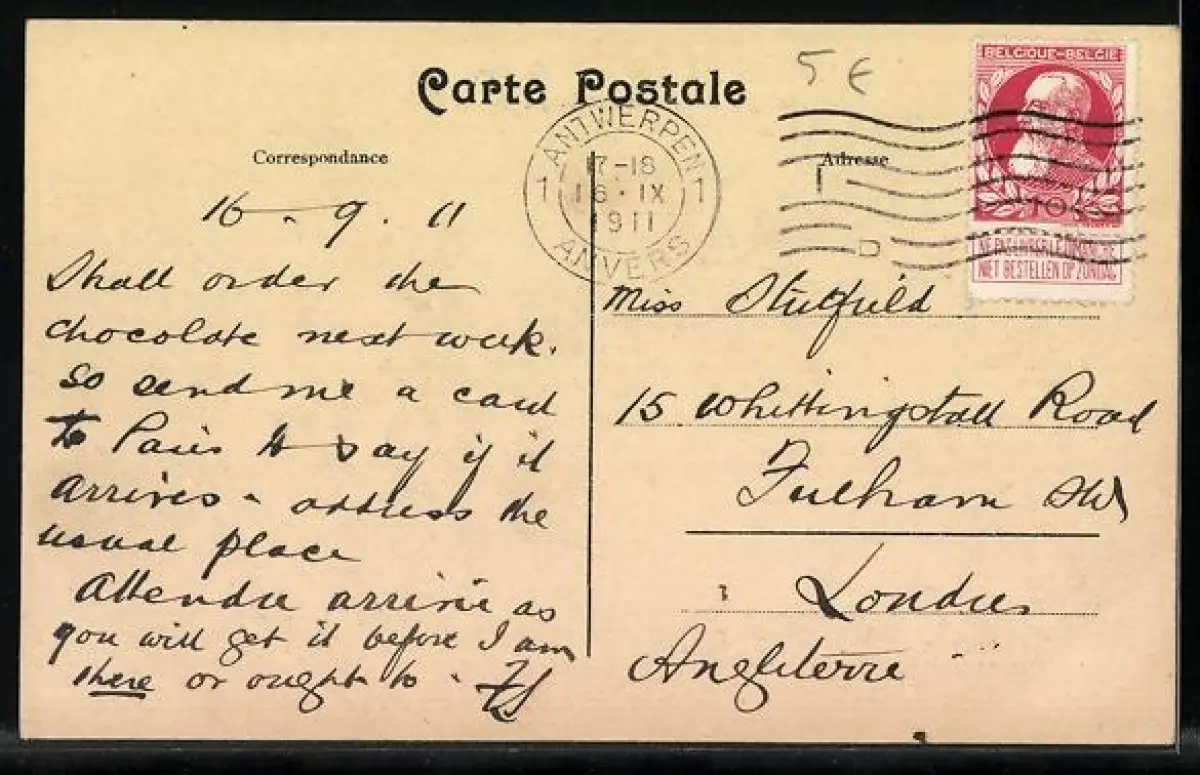 Carte Postale
5 €
BELGIQUE-BELGIE
10
NE PAS LIVRER LE DIMANCHE
NIET BESTELLEN OP ZONDAG
ANTWERPEN
1 17-18 1
16·IX
1911
ANVERS
Correspondance
Adresse
16 - 9 . 11
Shall order the
chocolate next week.
So send me a card
to Paris to say if it
arrives - address the
usual place
Attendre arrivée as
you will get it before I am
there or ought to -
Miss Stutfield
15 Whittingstall Road
Fulham SW
Londres
Angleterre